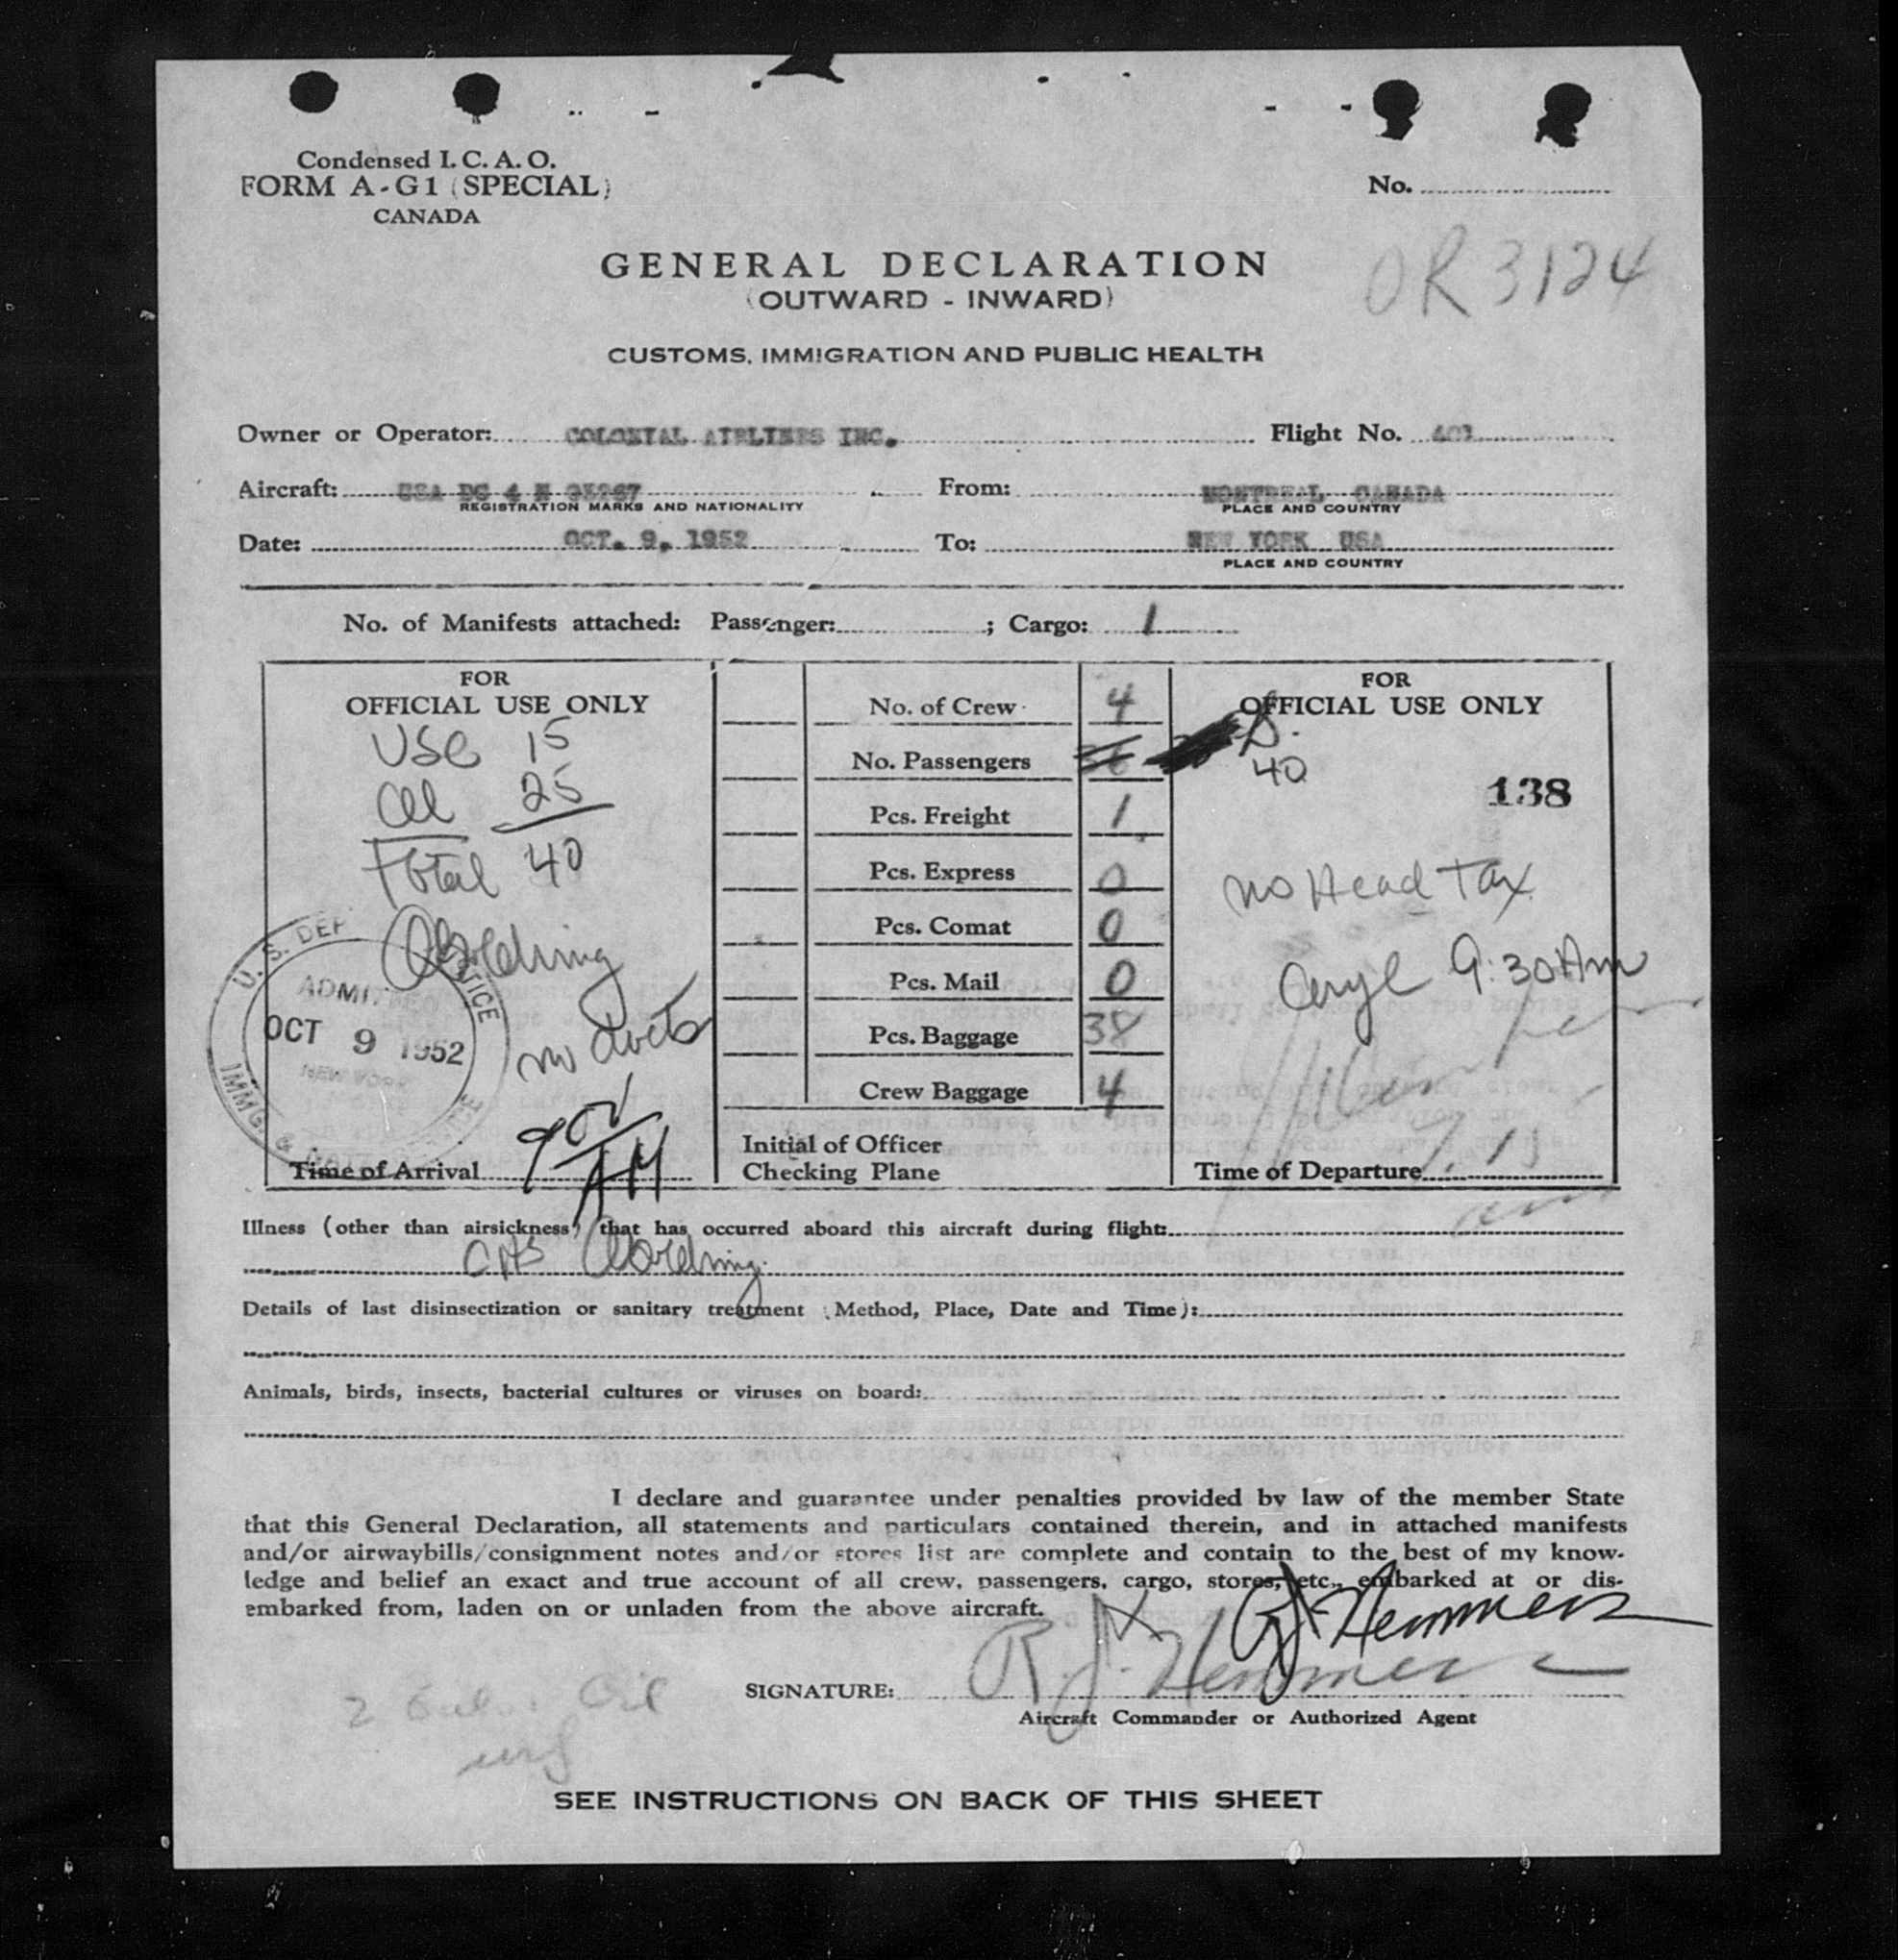 Condensed I. C. A. O.
FORM A-G1 (SPECIAL)
CANADA
No.
OR 3124
GENERAL DECLARATION
(OUTWARD - INWARD)
CUSTOMS, IMMIGRATION AND PUBLIC HEALTH
Owner or Operator: COLONIAL AIRLINES INC. Flight No.
Aircraft: USA DC 4 N From: MONTREAL CANADA
REGISTRATION MARKS AND NATIONALITY PLACE AND COUNTRY
Date: OCT. 9, 1952 To: NEW YORK USA
PLACE AND COUNTRY
No. of Manifests attached: Passenger: ; Cargo: 1
FOR
OFFICIAL USE ONLY
USC 15
Al 25
Total 40
no docts
U. S. DEP JUSTICE
ADMITTED
OCT 9 1952
NEW YORK
IMMG. &
Time of Arrival 902 AM
No. of Crew 4
No. Passengers 36
Pcs. Freight 1
Pcs. Express 0
Pcs. Comat 0
Pcs. Mail 0
Pcs. Baggage 38
Crew Baggage 4
Initial of Officer
Checking Plane
FOR
OFFICIAL USE ONLY
40
138
no Head Tax
9:30 AM
Time of Departure 7.15
am
Illness (other than airsickness) that has occurred aboard this aircraft during flight:
Details of last disinsectization or sanitary treatment (Method, Place, Date and Time):
Animals, birds, insects, bacterial cultures or viruses on board:
I declare and guarantee under penalties provided by law of the member State
that this General Declaration, all statements and particulars contained therein, and in attached manifests
and/or airwaybills/consignment notes and/or stores list are complete and contain to the best of my know-
ledge and belief an exact and true account of all crew, passengers, cargo, stores, etc., embarked at or dis-
embarked from, laden on or unladen from the above aircraft.
R J Hemmers
SIGNATURE: R. J. Hemmers
Aircraft Commander or Authorized Agent
2 Oil
SEE INSTRUCTIONS ON BACK OF THIS SHEET